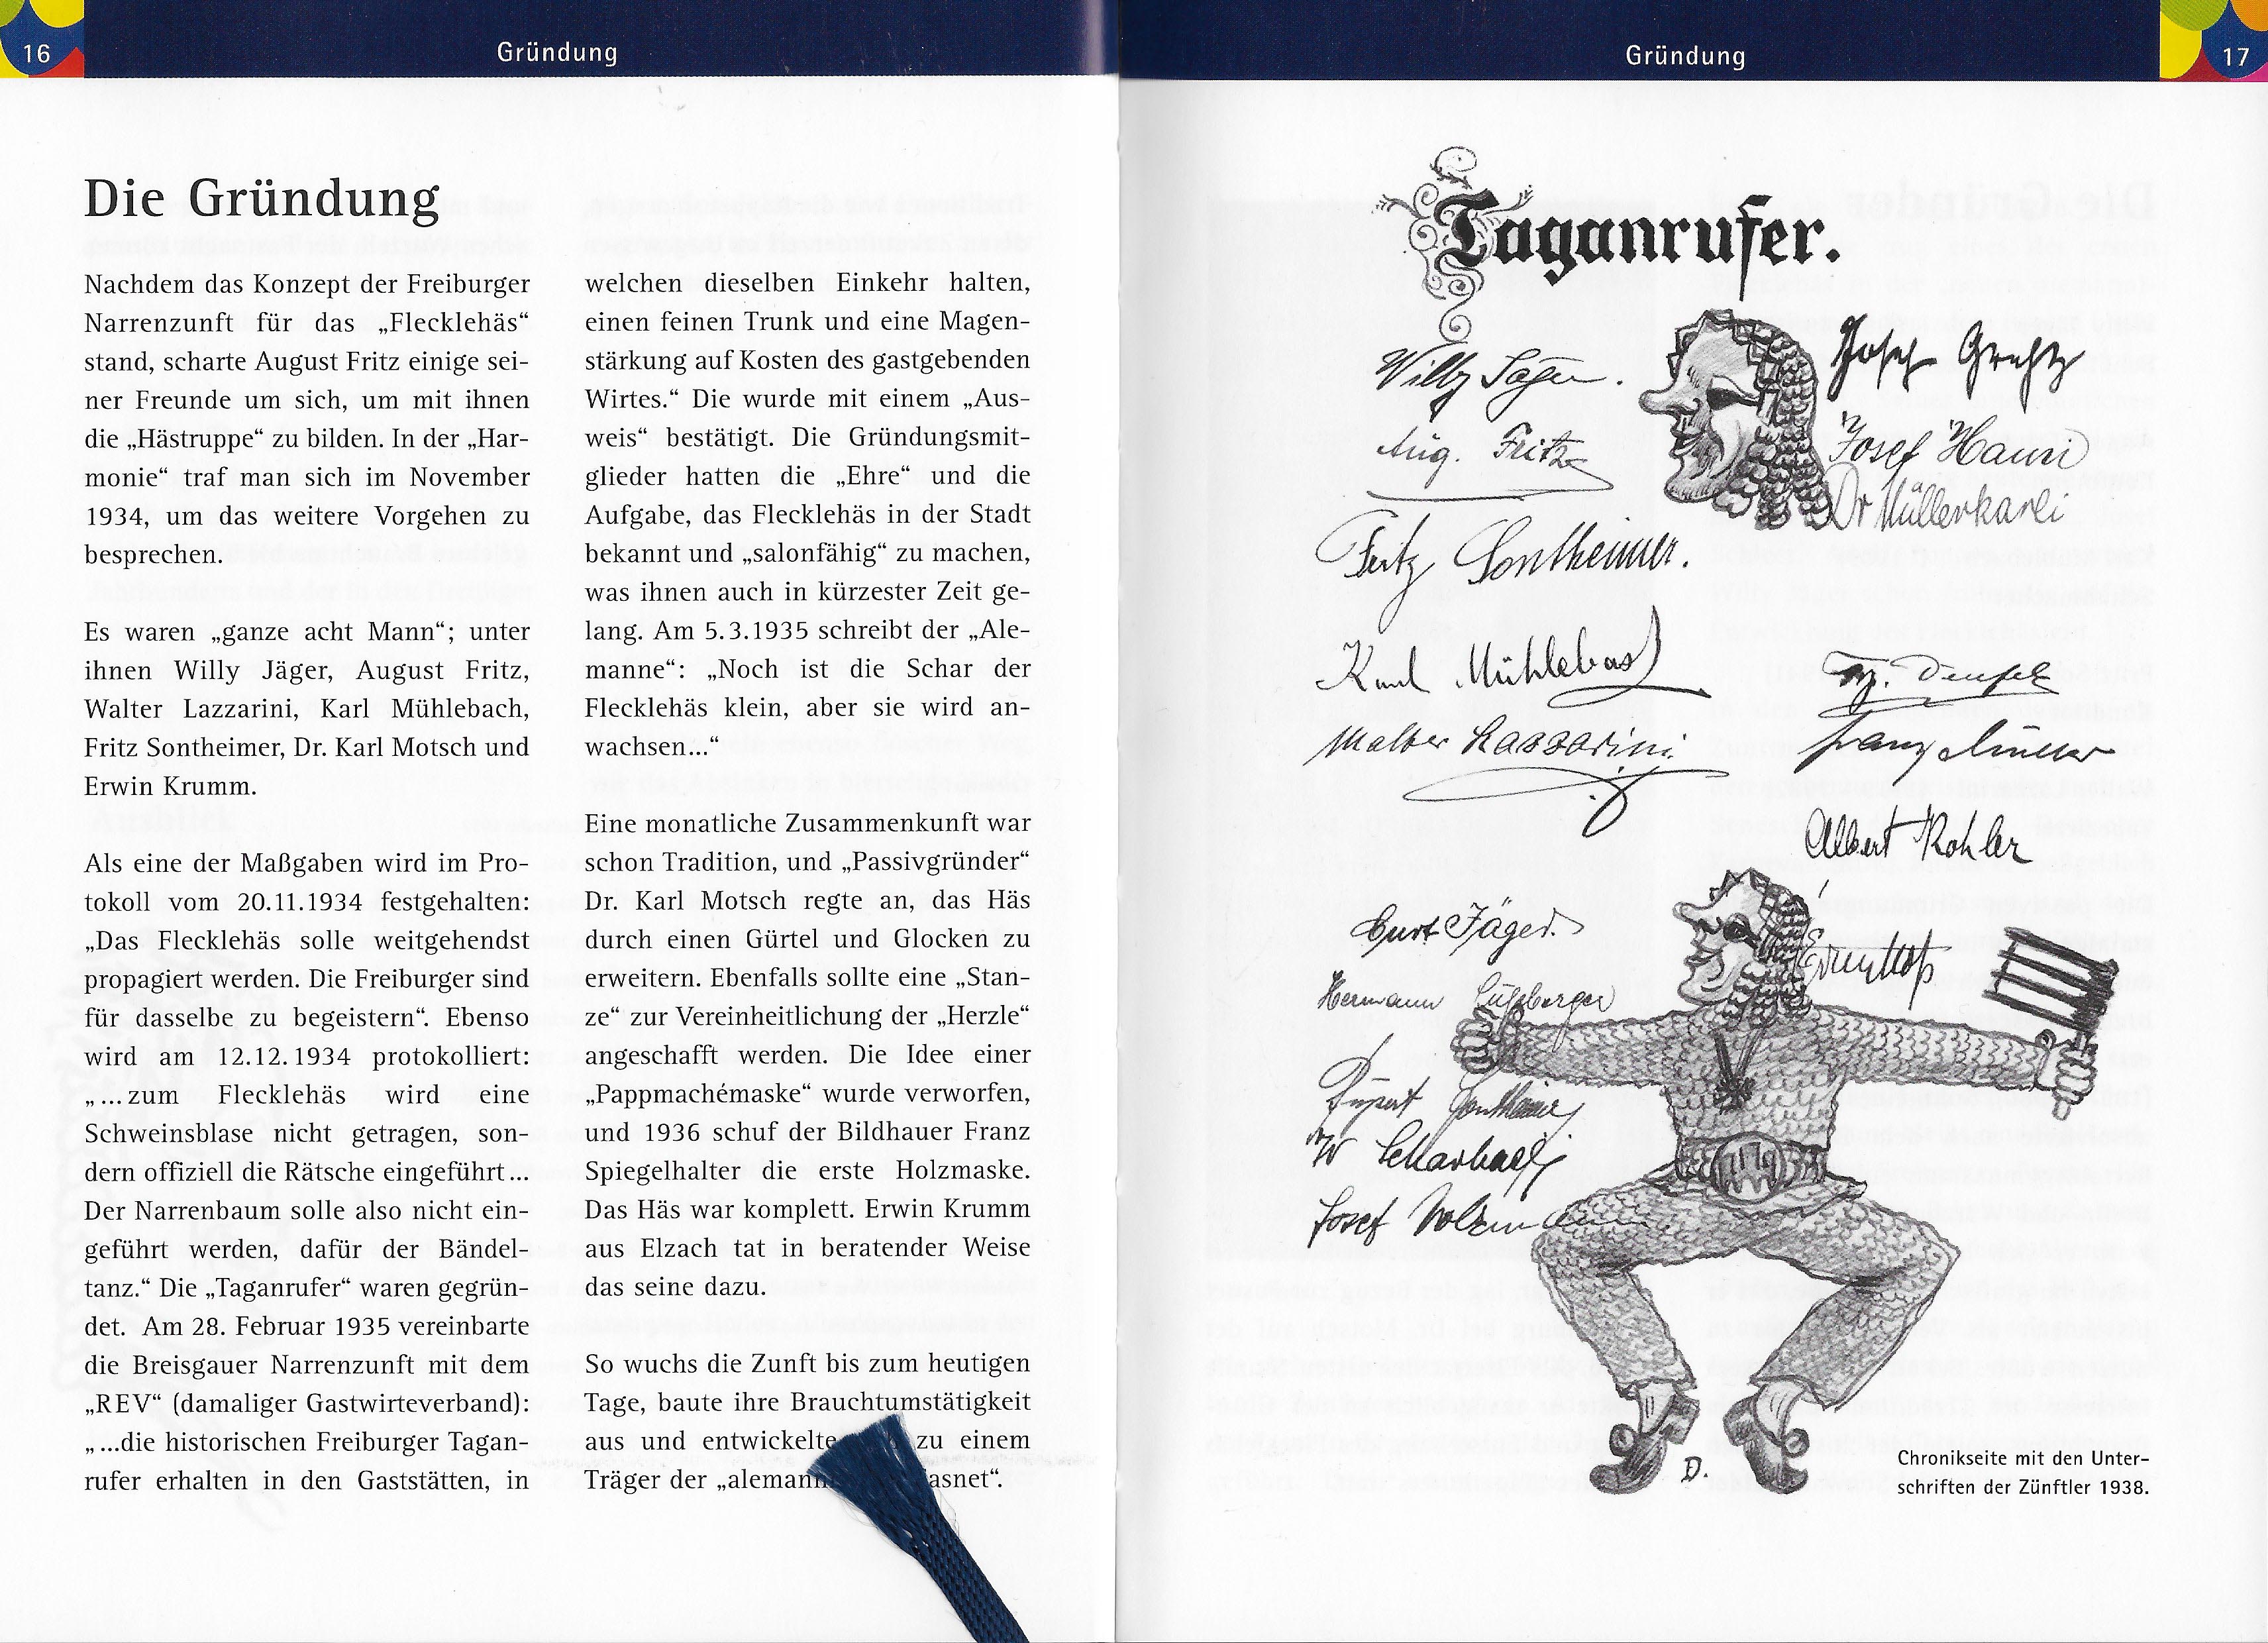 16
Gründung
Die Gründung
Nachdem das Konzept der Freiburger
Narrenzunft für das „Flecklehäs“
stand, scharte August Fritz einige sei-
ner Freunde um sich, um mit ihnen
die „Hästruppe“ zu bilden. In der „Har-
monie“ traf man sich im November
1934, um das weitere Vorgehen zu
besprechen.
Es waren „ganze acht Mann“; unter
ihnen Willy Jäger, August Fritz,
Walter Lazzarini, Karl Mühlebach,
Fritz Sontheimer, Dr. Karl Motsch und
Erwin Krumm.
Als eine der Maßgaben wird im Pro-
tokoll vom 20.11.1934 festgehalten:
„Das Flecklehäs solle weitgehendst
propagiert werden. Die Freiburger sind
für dasselbe zu begeistern“. Ebenso
wird am 12.12.1934 protokolliert:
„...zum Flecklehäs wird eine
Schweinsblase nicht getragen, son-
dern offiziell die Rätsche eingeführt...
Der Narrenbaum solle also nicht ein-
geführt werden, dafür der Bändel-
tanz.“ Die „Taganrufer“ waren gegrün-
det. Am 28. Februar 1935 vereinbarte
die Breisgauer Narrenzunft mit dem
„REV“ (damaliger Gastwirteverband):
„...die historischen Freiburger Tagan-
rufer erhalten in den Gaststätten, in
welchen dieselben Einkehr halten,
einen feinen Trunk und eine Magen-
stärkung auf Kosten des gastgebenden
Wirtes.“ Die wurde mit einem „Aus-
weis“ bestätigt. Die Gründungsmit-
glieder hatten die „Ehre“ und die
Aufgabe, das Flecklehäs in der Stadt
bekannt und „salonfähig“ zu machen,
was ihnen auch in kürzester Zeit ge-
lang. Am 5.3.1935 schreibt der „Ale-
manne“: „Noch ist die Schar der
Flecklehäs klein, aber sie wird an-
wachsen...“
Eine monatliche Zusammenkunft war
schon Tradition, und „Passivgründer“
Dr. Karl Motsch regte an, das Häs
durch einen Gürtel und Glocken zu
erweitern. Ebenfalls sollte eine „Stan-
ze“ zur Vereinheitlichung der „Herzle“
angeschafft werden. Die Idee einer
„Pappmachémaske“ wurde verworfen,
und 1936 schuf der Bildhauer Franz
Spiegelhalter die erste Holzmaske.
Das Häs war komplett. Erwin Krumm
aus Elzach tat in beratender Weise
das seine dazu.
So wuchs die Zunft bis zum heutigen
Tage, baute ihre Brauchtumstätigkeit
aus und entwickelte zu einem
Träger der
Gründung
17
Taganrufer.
Willy Jäger.
Aug. Fritz
Fritz Sontheimer.
Karl Mühlebach
Walter Lazzarini
Josef
Josef Hauri
Dr Müllerkarli
Franz Müller
Albert Kohler
Curt Jäger.
Hermann
Rupert Sontheimer
W
Josef
D.
Chronikseite mit den Unter-
schriften der Zünftler 1938.